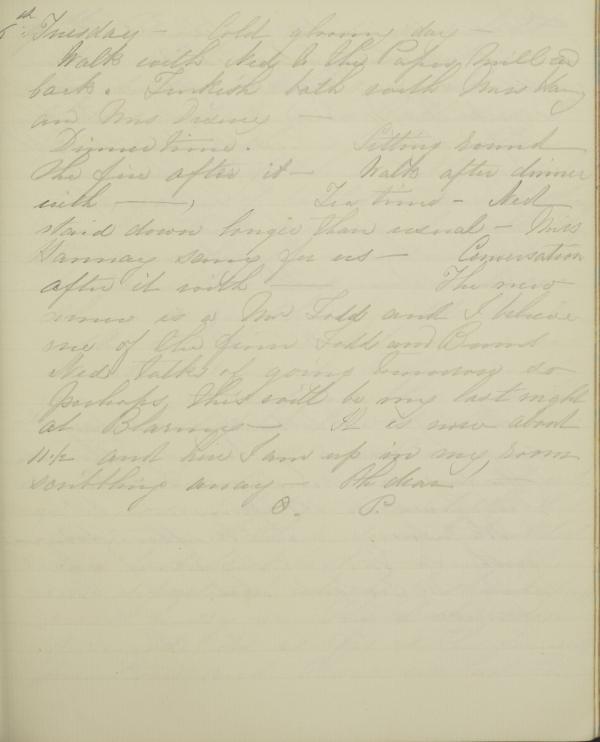 5th Tuesday — Cold gloomy day —
Walk with Ned to the Paper Mill and
back. Turkish bath with Miss Han
and Mrs
Dinner time. Sitting round
the fire after it — Walk after dinner
with ——, Tea time — Ned
staid down longer than usual — Miss
Hannay sang for us — Conversation
after it with —— The new
is a Mr Todd and I believe
one of the firm Todd and Burns
Ned talks of going tomorrow so
perhaps this will be my last night
at Blarney — It is now about
11½ and here I am up in my room
scribbling away — Oh dear
O. P.